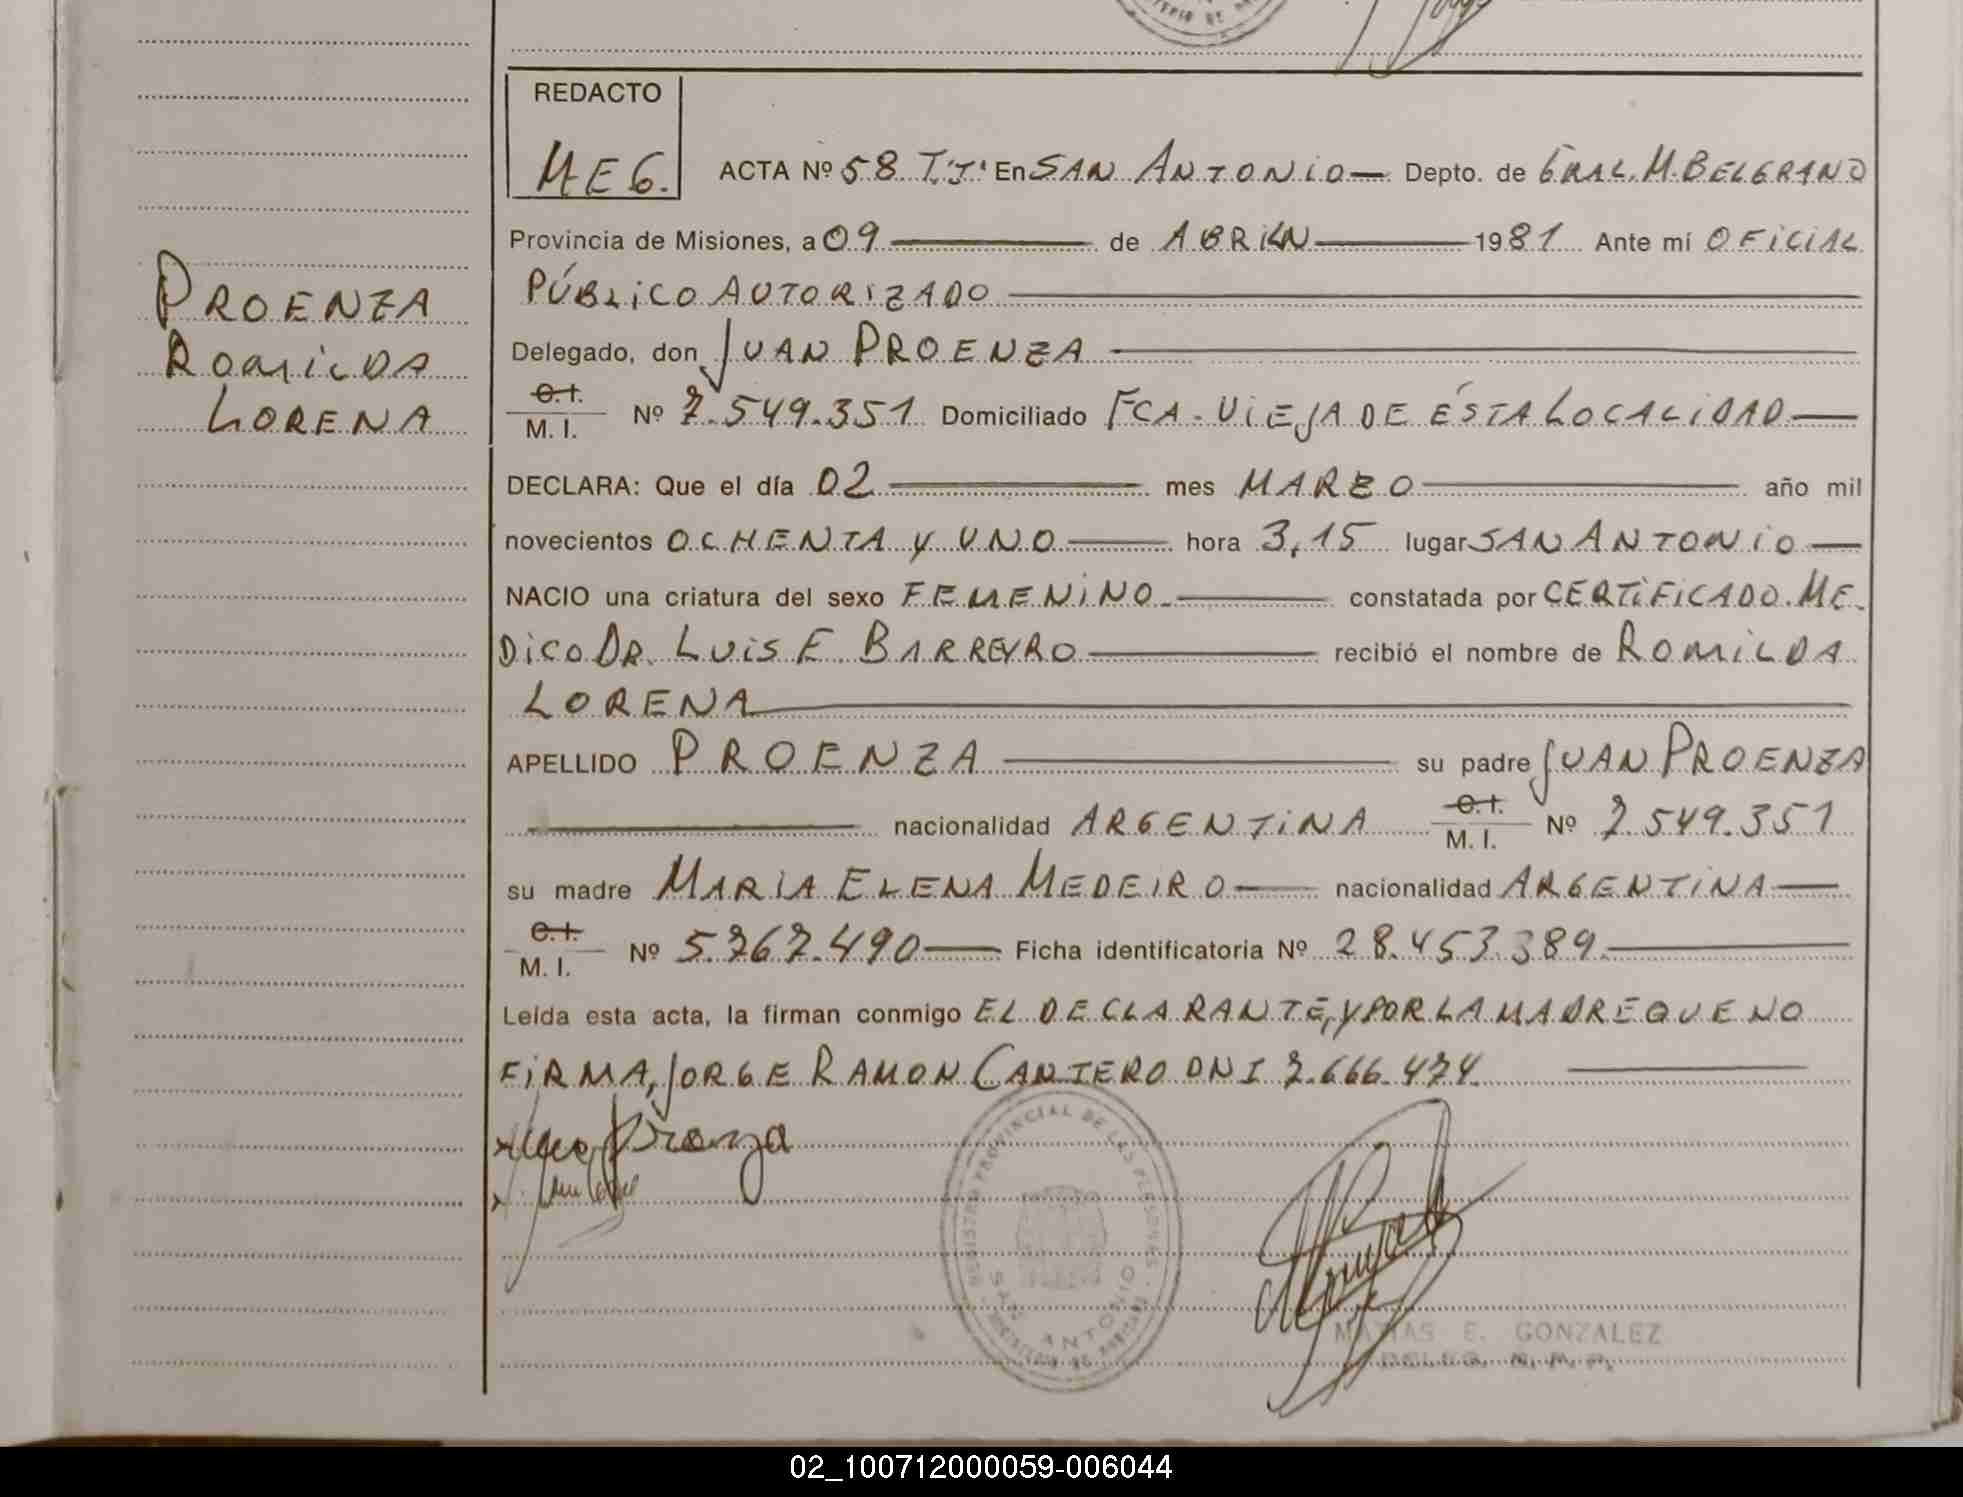 REDACTO
MEG. ACTA Nº 58 T.I. En SAN ANTONIO Depto. de GRAL. M. BELGRANO
Provincia de Misiones, a 09 de ABRIL 1981 Ante mí OFICIAL
PÚBLICO AUTORIZADO
PROENZA
ROMILDA
LORENA
Delegado, don JUAN PROENZA
C.I.
M.I. Nº 7.549.351 Domiciliado FCA. VIEJA DE ÉSTA LOCALIDAD
DECLARA: Que el día 02 mes MARZO año mil
novecientos OCHENTA Y UNO hora 3,15 lugar SAN ANTONIO
NACIO una criatura del sexo FEMENINO. constatada por CERTIFICADO. ME.
DICO DR. LUIS E BARREYRO recibió el nombre de ROMILDA
LORENA
APELLIDO PROENZA su padre JUAN PROENZA
nacionalidad ARGENTINA C.I. M.I. Nº 7.549.351
su madre MARIA ELENA MEDEIRO nacionalidad ARGENTINA
C.I.
M.I. Nº 5.767.490 Ficha identificatoria Nº 28.453.389.
Leída esta acta, la firman conmigo EL DECLARANTE, Y POR LA MADRE QUE NO
FIRMA, JORGE RAMON CANTERO DNI 7.666.474.
Proenza
REGISTRO PROVINCIAL DE LAS PERSONAS
SAN ANTONIO
MATIAS E. GONZALEZ
02_100712000059-006044